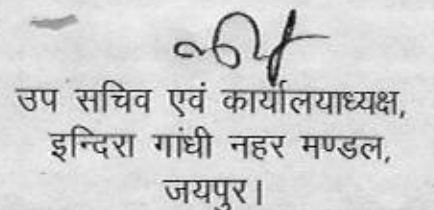 उप सचिव एवं कार्यालयाध्यक्ष,
इन्दिरा गांधी नहर मण्डल,
जयपुर।